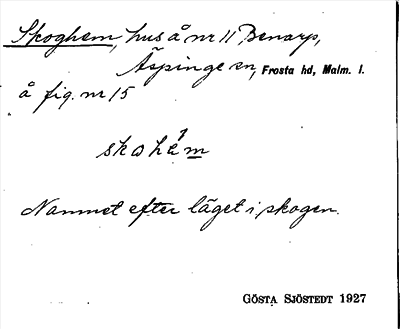 Skoghem, hus å nr 11 Benarp,
Äspinge sn, Frosta hd, Malm. l.
å fig. nr 15
skohem
Namnet efter läget i skogen.
GÖSTA SJÖSTEDT 1927